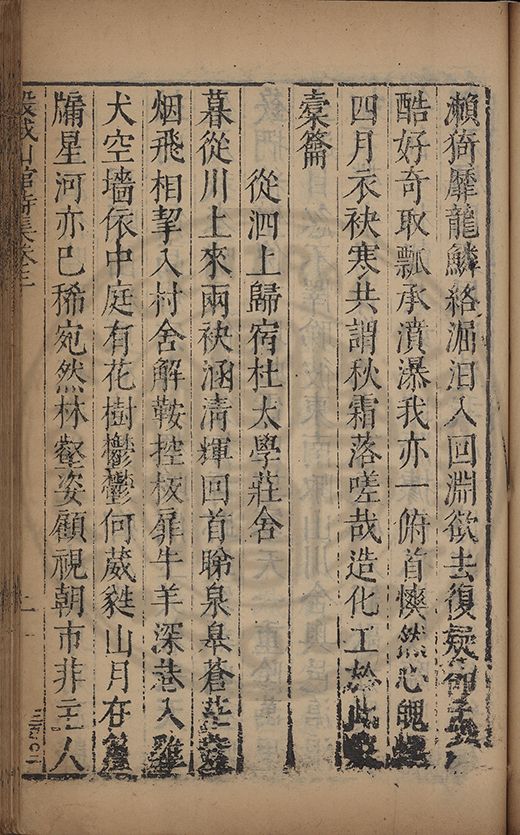 瀨猗靡龍鱗絡漚汩入回淵欲去復疑
酷好奇取瓢承濆瀑我亦一俯首懊然心魄
四月衣袂寒共謂秋霜落嗟哉造化工於此
橐籥
從泗上歸宿杜太學莊舍
暮從川上來兩袂涵清輝回首睇泉皋蒼茫
烟飛相挈入村舍解鞍控板扉牛羊深巷入雞
犬空墻依中庭有花樹鬱鬱何葳蕤山月在
牗星河亦已稀宛然林壑姿顧視朝市非主人
山館詩集卷三